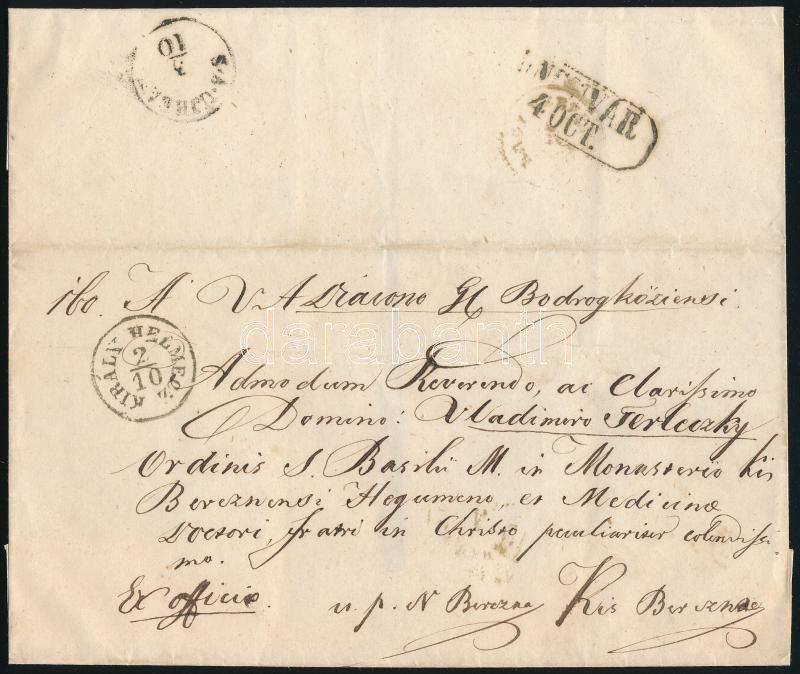 S.A. UJHELY
3/10
UNGVÁR
4 OCT.
160. A V. A Diacono GC Bodrogköziensi.
KIRÁLY HELMECZ
2/10
Admodum Reverendo, ac Clarissimo
Domino: Vladimiro Terleczky
Ordinis S. Basilii M. in Monasterio Kis
Bereznensi Hegumeno, et Medicinæ
Doctori, fratri in Christo peculiariter colendissi
mo.
Ex officio. u. p. N Berezna Kis Bereznae
darabanth